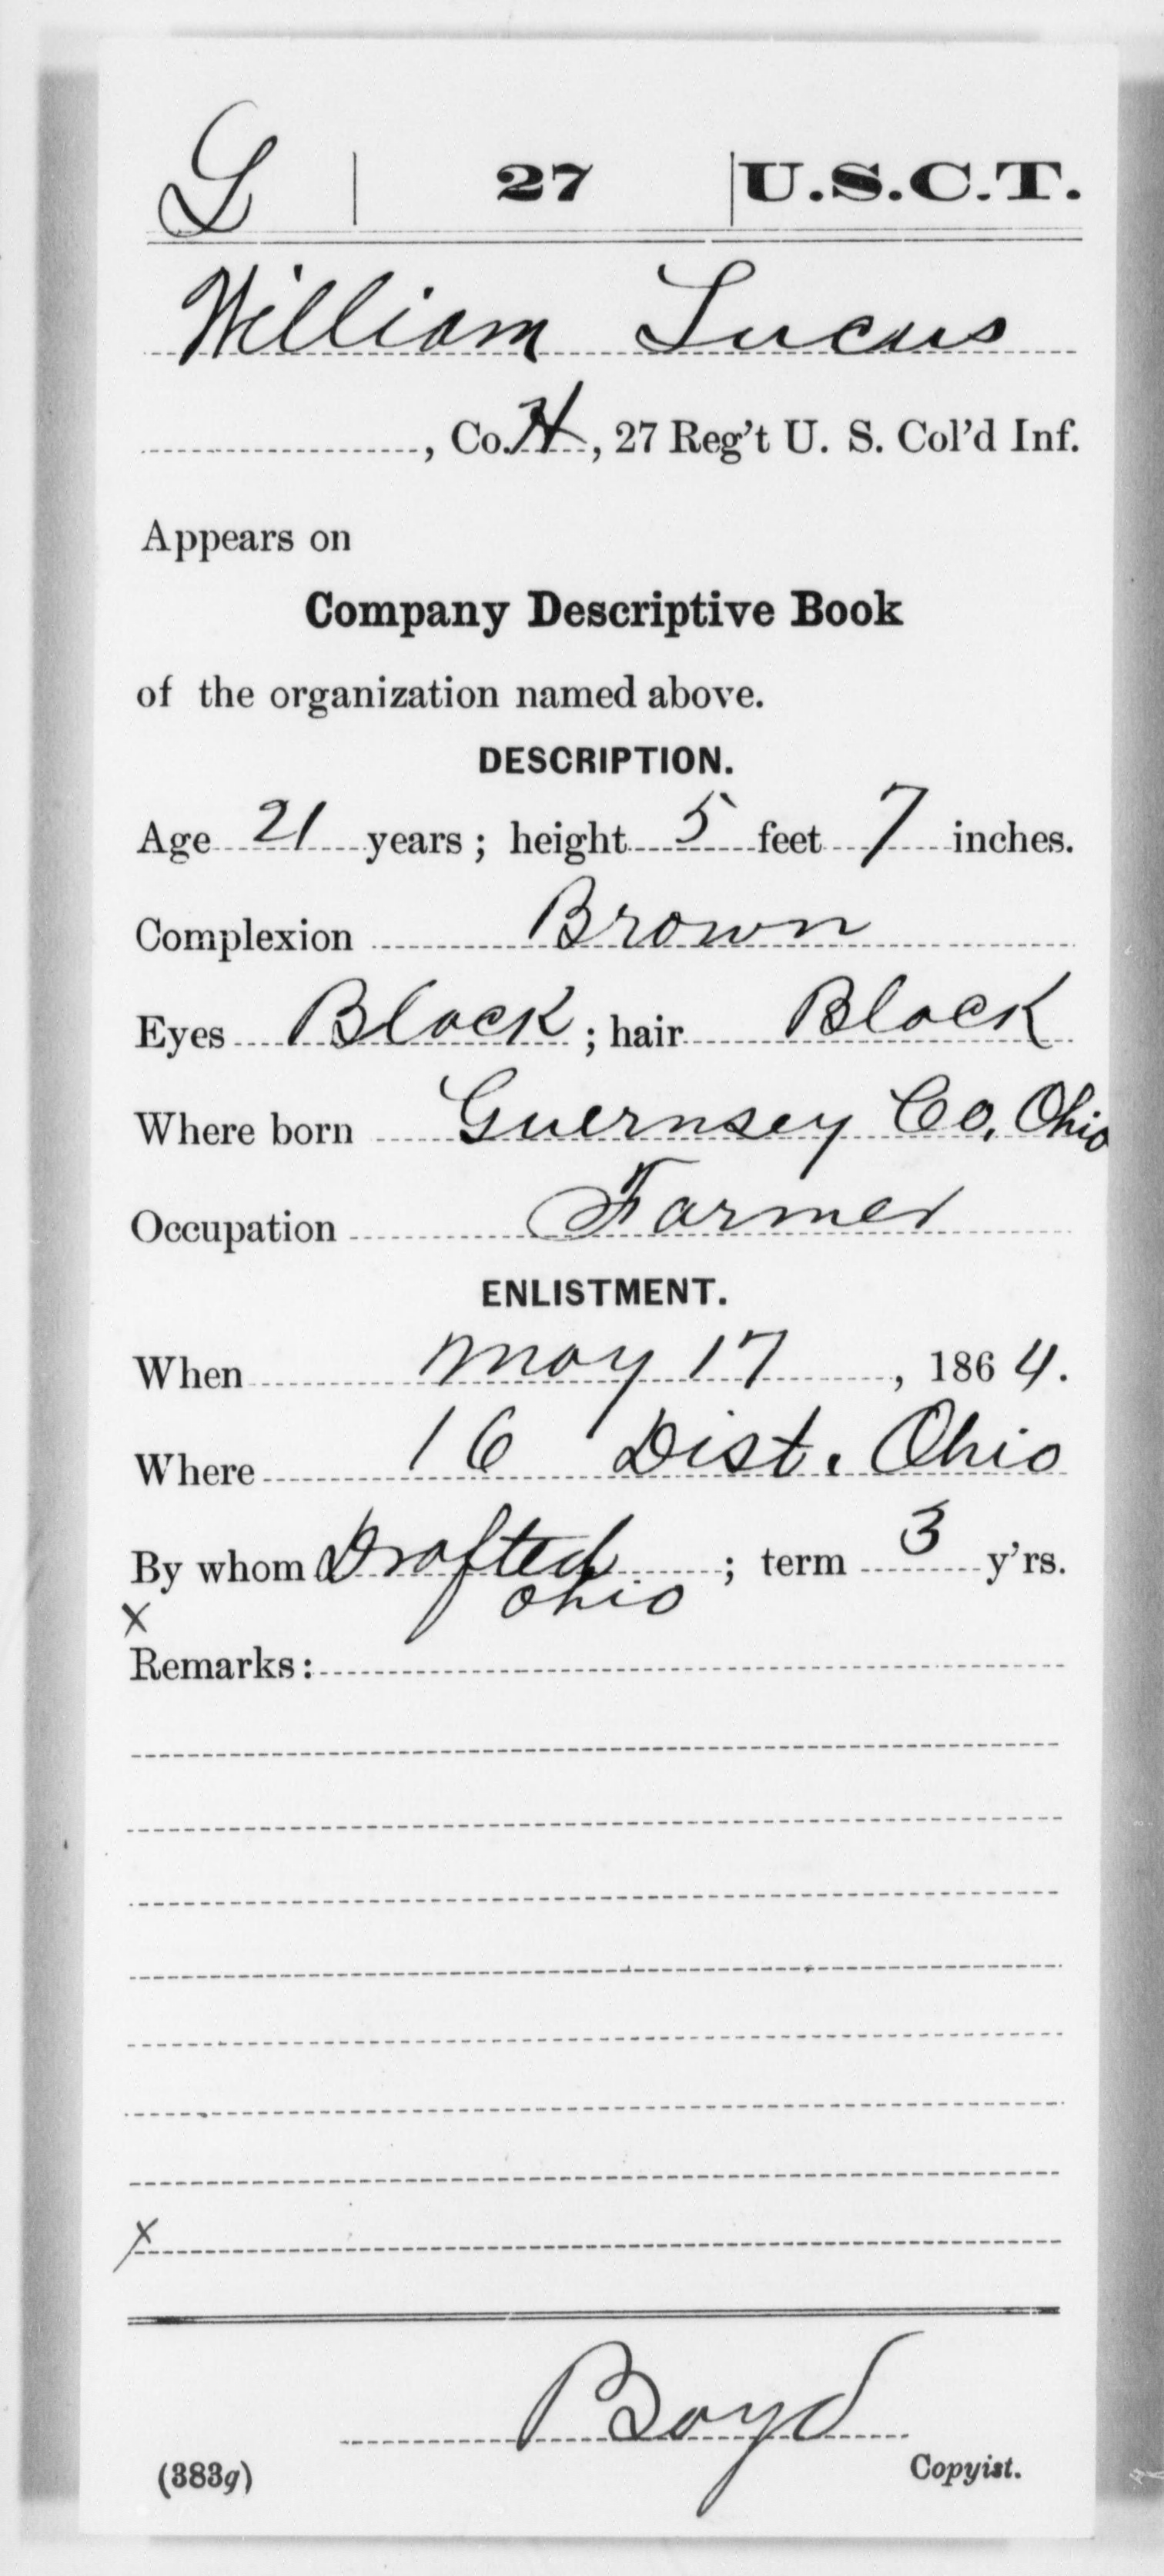 L | 27 | U.S.C.T.
William Lucas
, Co. H, 27 Reg't U. S. Col'd Inf.
Appears on
Company Descriptive Book
of the organization named above.
DESCRIPTION.
Age 21 years; height 5 feet 7 inches.
Complexion Brown
Eyes Black; hair Black
Where born Guernsey Co, Ohio
Occupation Farmer
ENLISTMENT.
When May 17, 1864.
Where 16 Dist. Ohio
By whom Drafted; term 3 y'rs.
Ohio
x
Remarks:
x
Boyd
(383g) Copyist.